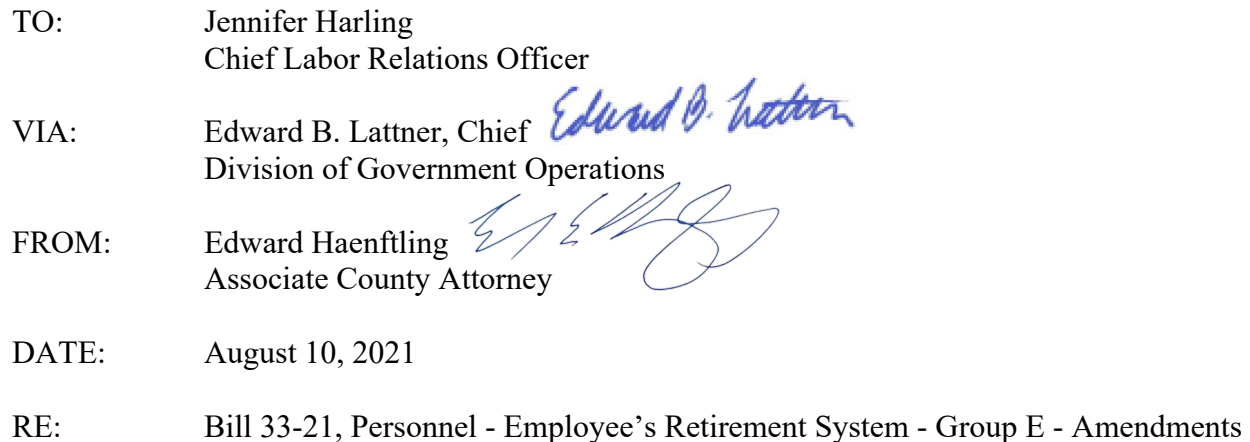 TO: Jennifer Harling
Chief Labor Relations Officer
VIA: Edward B. Lattner, Chief Edward B. Lattner
Division of Government Operations
FROM: Edward Haenftling
Associate County Attorney
DATE: August 10, 2021
RE: Bill 33-21, Personnel - Employee’s Retirement System - Group E - Amendments